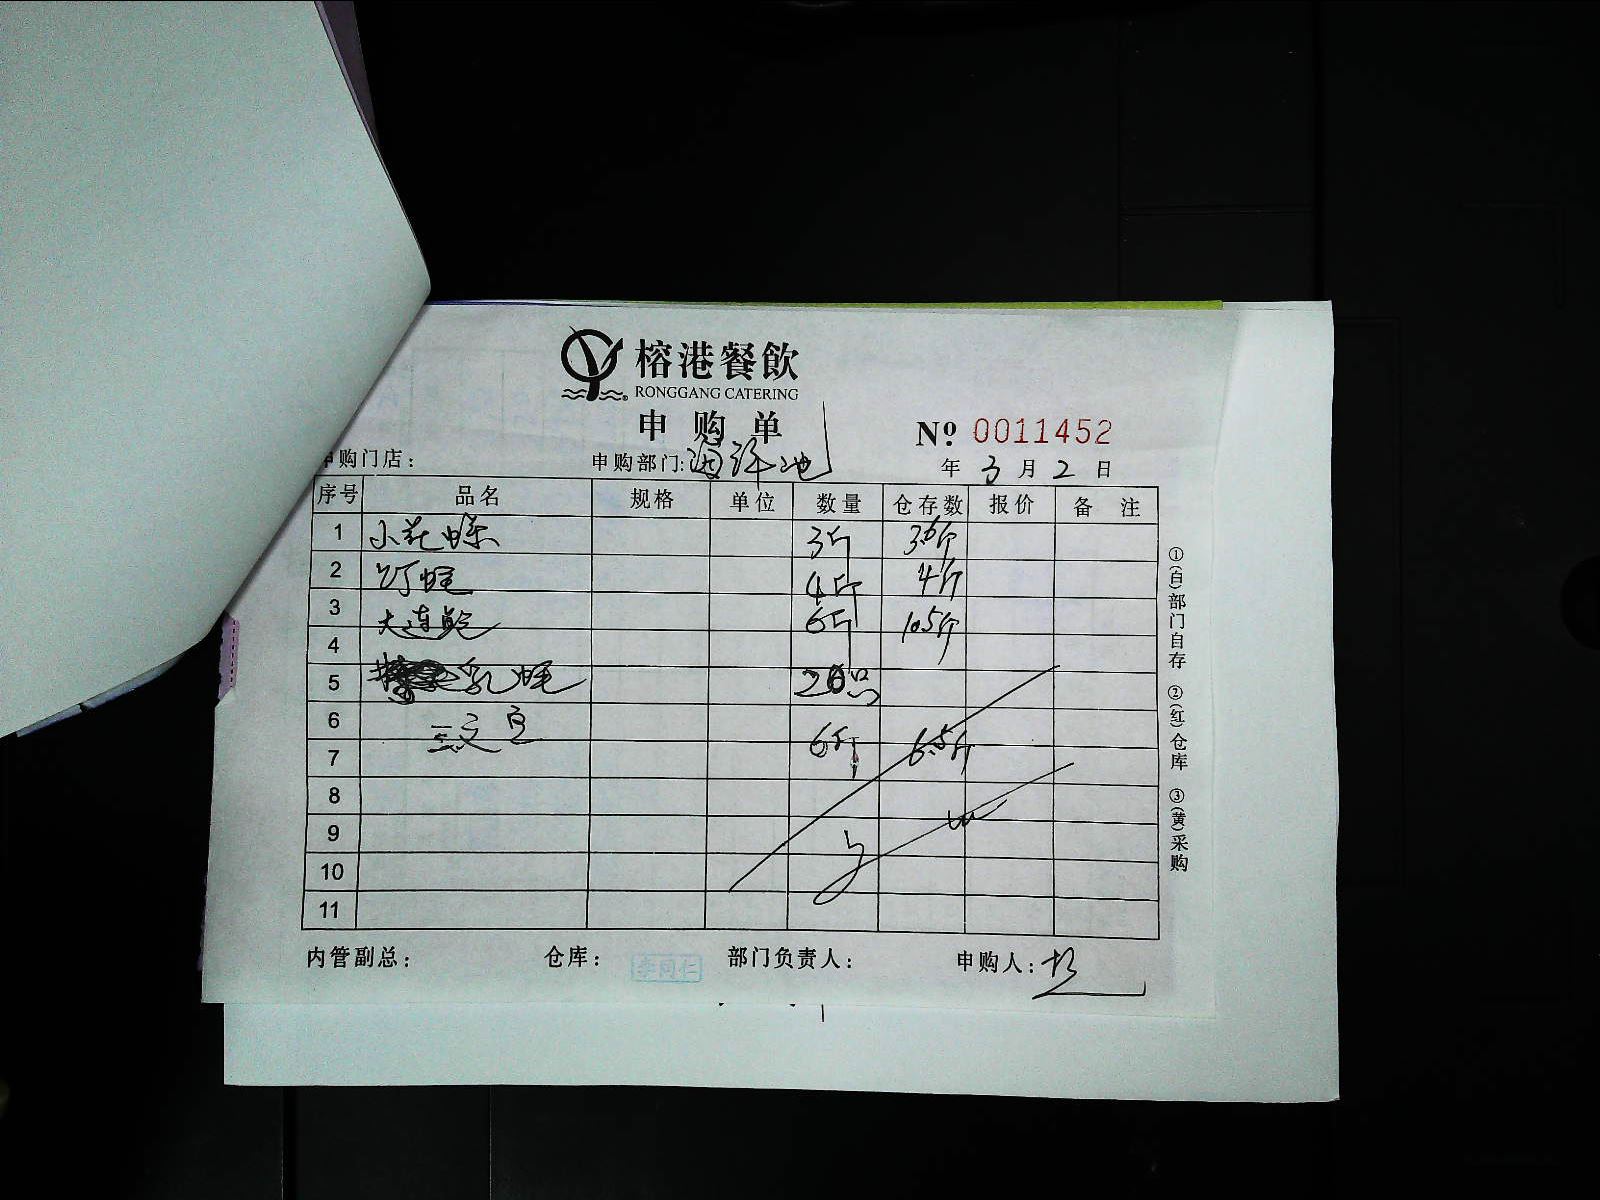 榕港餐飲
RONGGANG CATERING
申购单
Nº 0011452
申购门店： 申购部门: 海鲜池 年 3 月 2 日
序号 品名 规格 单位 数量 仓存数 报价 备注
1 小花螺 3斤 3.6斤
2 4斤 4斤
3 大连鲍 6斤 10.5斤
4
5 乳 20只
6 三文 6斤 6.5斤
7
8
9
10
11
内管副总： 仓库： 李同仁 部门负责人： 申购人：
①(白)部门自存 ②(红)仓库 ③(黄)采购